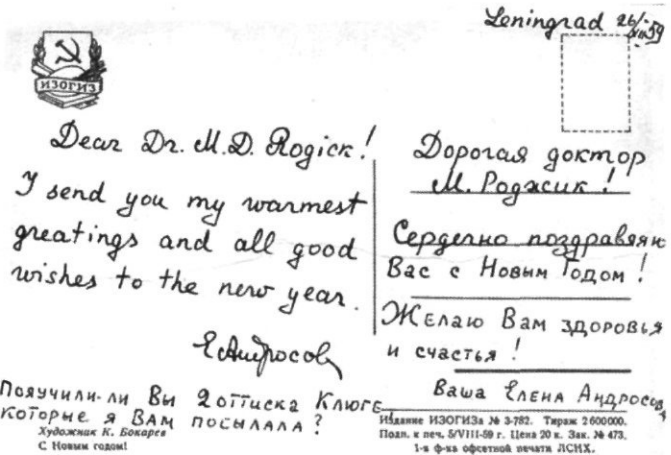 Leningrad 26/XII 59
ИЗОГИЗ
Dear Dr. M.D. Rogick!
I send you my warmest
greatings and all good
wishes to the new year.
ЕАндросов
Получили-ли Вы 2 оттиска Клюге
которые я Вам посылала?
Художник К. Бокарев
С Новым годом!
Дорогая доктор
М. Роджсик!
Сердечно поздравляю
Вас с Новым Годом!
Желаю Вам здоровья
и счастья!
Ваша Елена Андросов
Издание ИЗОГИЗа № 3-782. Тираж 2600000.
Подп. к печ. 5/VIII-59 г. Цена 20 к. Зак. № 473.
1-я ф-ка офсетной печати ЛСНХ.